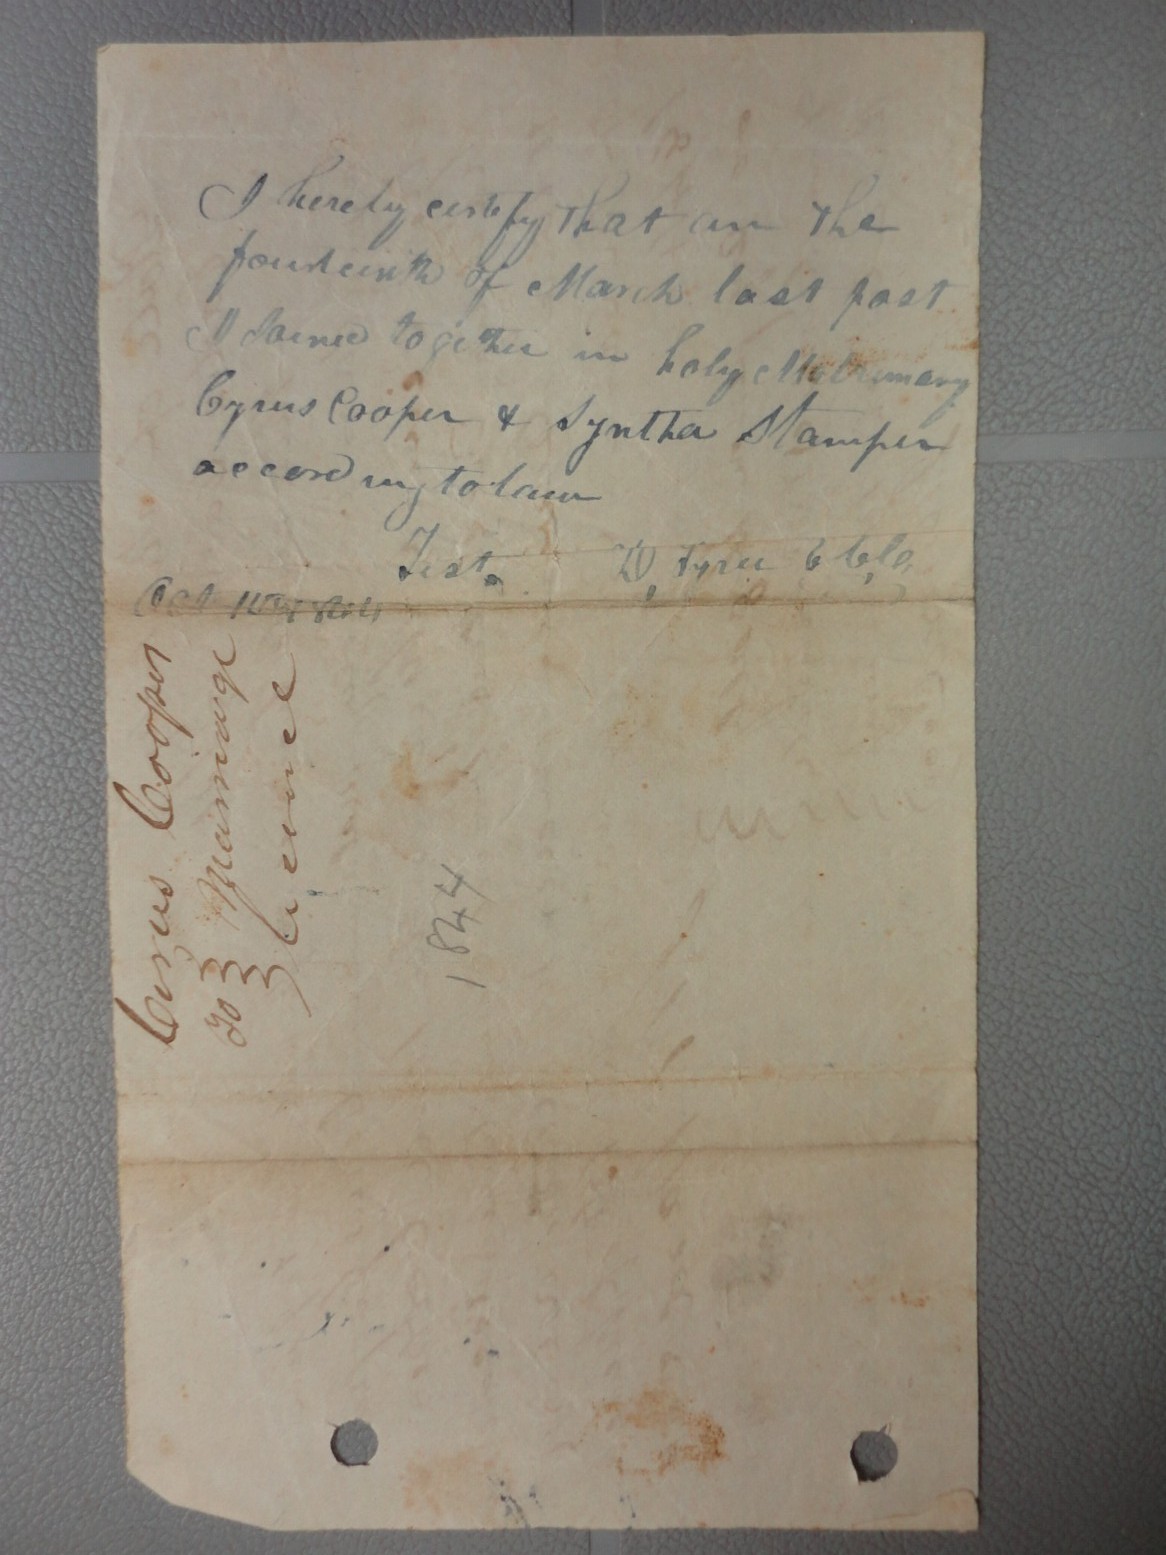 I hereby certify that on the
fourteenth of March last past
I Joined together in holy Matrimony
Cyrus Cooper & Syntha Stamper
according to law
Test. D, Tyree
Oct
Cyrus Cooper
To Marriage
Licence
1844